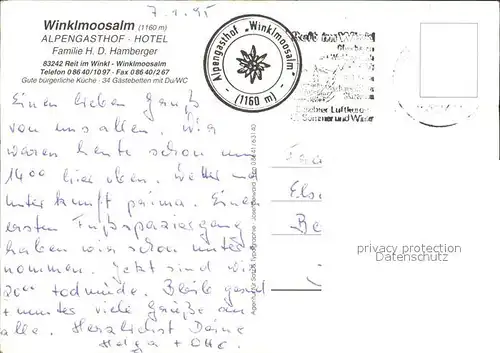 7.1.95
Winklmoosalm (1160 m)
ALPENGASTHOF · HOTEL
Familie H. D. Hamberger
83242 Reit im Winkl · Winklmoosalm
Telefon 0 86 40 / 10 97 · Fax 0 86 40 / 2 67
Gute bürgerliche Küche · 34 Gästebetten mit Du/WC
Alpengasthof „Winklmoosalm"
- (1160 m) -
Reit im Winkl
Luftkurort
Sommer und Winter
Einen lieben Gruß
von uns allen. Wir
waren heute schon um
14 00 hier oben. Wetter und
Unterkunft prima. Einen
ersten Fußspaziergang
haben wir schon unter
nommen. Jetzt sind wir
20 00 todmüde. Bleib gesund
+ munter viele Grüße an
alle. Herzlichst Deine
Helga + Otto
Els
Be
privacy protection
DATENSCHUTZ